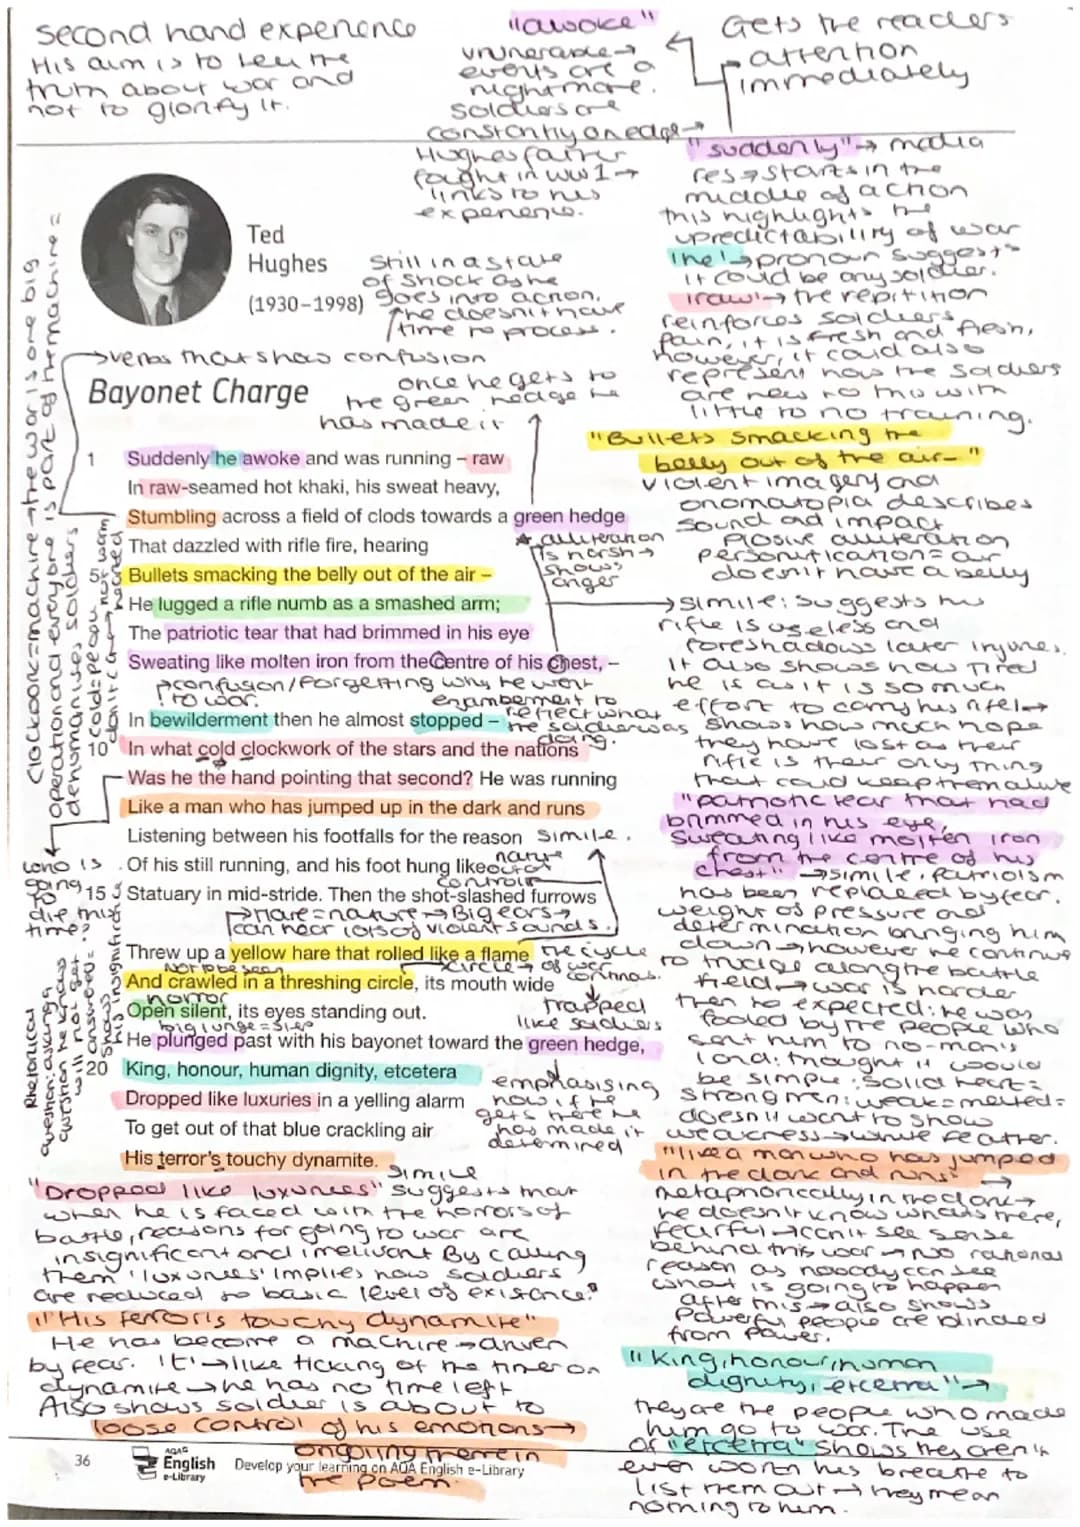 second hand experience
His aim is to tell the
truth about war and
not to glorify it.
"awoke"
vnunerable→
events are a
nightmare.
soldiers are
constantly on edge→
Hughes father
fought in WW1→
links to his
experience.
Gets the readers
attention
immediately
"suddenly"→ media
res→starts in the
middle of action
this highlights the
upredictability of war
'he'→pronoun suggests
it could be any soldier.
'raw'→the repitition
reinforces soldiers
pain, it is fresh and fresh,
however, it could also
represent how the soldiers
are new to this with
little to no training.
Ted
Hughes
(1930–1998)
Still in a state
of shock as he
goes into action.
he doesn't have
time to process.
→verbs that show confusion
Bayonet Charge
once he gets to
the green hedge he
has made it
1 Suddenly he awoke and was running – raw
In raw-seamed hot khaki, his sweat heavy,
Stumbling across a field of clods towards a green hedge
That dazzled with rifle fire, hearing
5 Bullets smacking the belly out of the air –
He lugged a rifle numb as a smashed arm;
The patriotic tear that had brimmed in his eye
Sweating like molten iron from the centre of his chest, –
★ alliteration
'h' is harsh→
shows
anger
→confusion/forgetting why he went
to war.
enjambement to
reflect what
the soldier was
doing.
In bewilderment then he almost stopped –
10 In what cold clockwork of the stars and the nations
Was he the hand pointing that second? He was running
Like a man who has jumped up in the dark and runs
Listening between his footfalls for the reason
simile.
Of his still running, and his foot hung like
out of
control
15 Statuary in mid-stride. Then the shot-slashed furrows
→hare=nature→Big ears→
can hear lots of violent sounds.
Threw up a yellow hare that rolled like a flame
Not to be seen
→circle→
the cycle
of war
continues.
And crawled in a threshing circle, its mouth wide
horror
trapped
like soldiers
Open silent, its eyes standing out.
big lunge=step
He plunged past with his bayonet toward the green hedge,
20 King, honour, human dignity, etcetera
Dropped like luxuries in a yelling alarm
To get out of that blue crackling air
His terror's touchy dynamite.
emphasising
how if he
gets there he
has made it
determined
clockwork=machine→the war is one big
operation and everyone is part of the machine=
dehumanises soldiers
cold=people
don't care
not warm
hearted
who is
going to
die this
time?
Rhetorical
question: asking a
question he knows
will not get
answered=
shows
his insignificance
"Bullets smacking the
belly out of the air–"
violent imagery and
onomatopia describes
sound and impact
plosive alliteration
personification= air
doesn't have a belly
→simile: suggests his
rifle is useless and
foreshadows later injuries.
It also shows how tired
he is as it is so much
effort to carry his rifle→
shows how much hope
they have lost as their
rifle is their only thing
that could keep them alive
"patriotic tear that had
brimmed in his eye,
Sweating like molten iron
from the centre of his
chest"→simile. patriotism
has been replaced by fear.
weight of pressure and
determination bringing him
down→however he continues
to trudge along the battle
field→war is harder
then he expected: he was
fooled by the people who
sent him to no-man's
land: thought it would
be simple: solid heart=
strong men: weak=melted=
doesn't want to show
weakness→white feather.
"like a man who has jumped
in the dark and runs"→
metaphorically in the dark→
he doesn't know whats there,
fearful→can't see sense
behind this war→no rational
reason as noboody can see
what is going to happen
after this→also shows
powerful people are blinded
from power.
"King, honour, human
dignity, etcetera"→
they are the people who made
him go to war. The use
of "etcetera" shows they aren't
even worth his breathe to
list them out→they mean
nothing to him.
simile
"Dropped like luxuries" suggests that
when he is faced with the horrors of
battle, reasons for going to war are
insignificant and irrelivant By calling
them 'luxuries' implies how soldiers
are reduced to basic level of existance."
"His terror's touchy dynamite"
He has become a machine→driven
by fear. 't'→like ticking of the timer on
dynamite→he has no time left
Also shows soldier is about to
loose control of his emotions→
ongoing theme in
the poem
36
AQA
English
e-Library
Develop your learning on AQA English e-Library